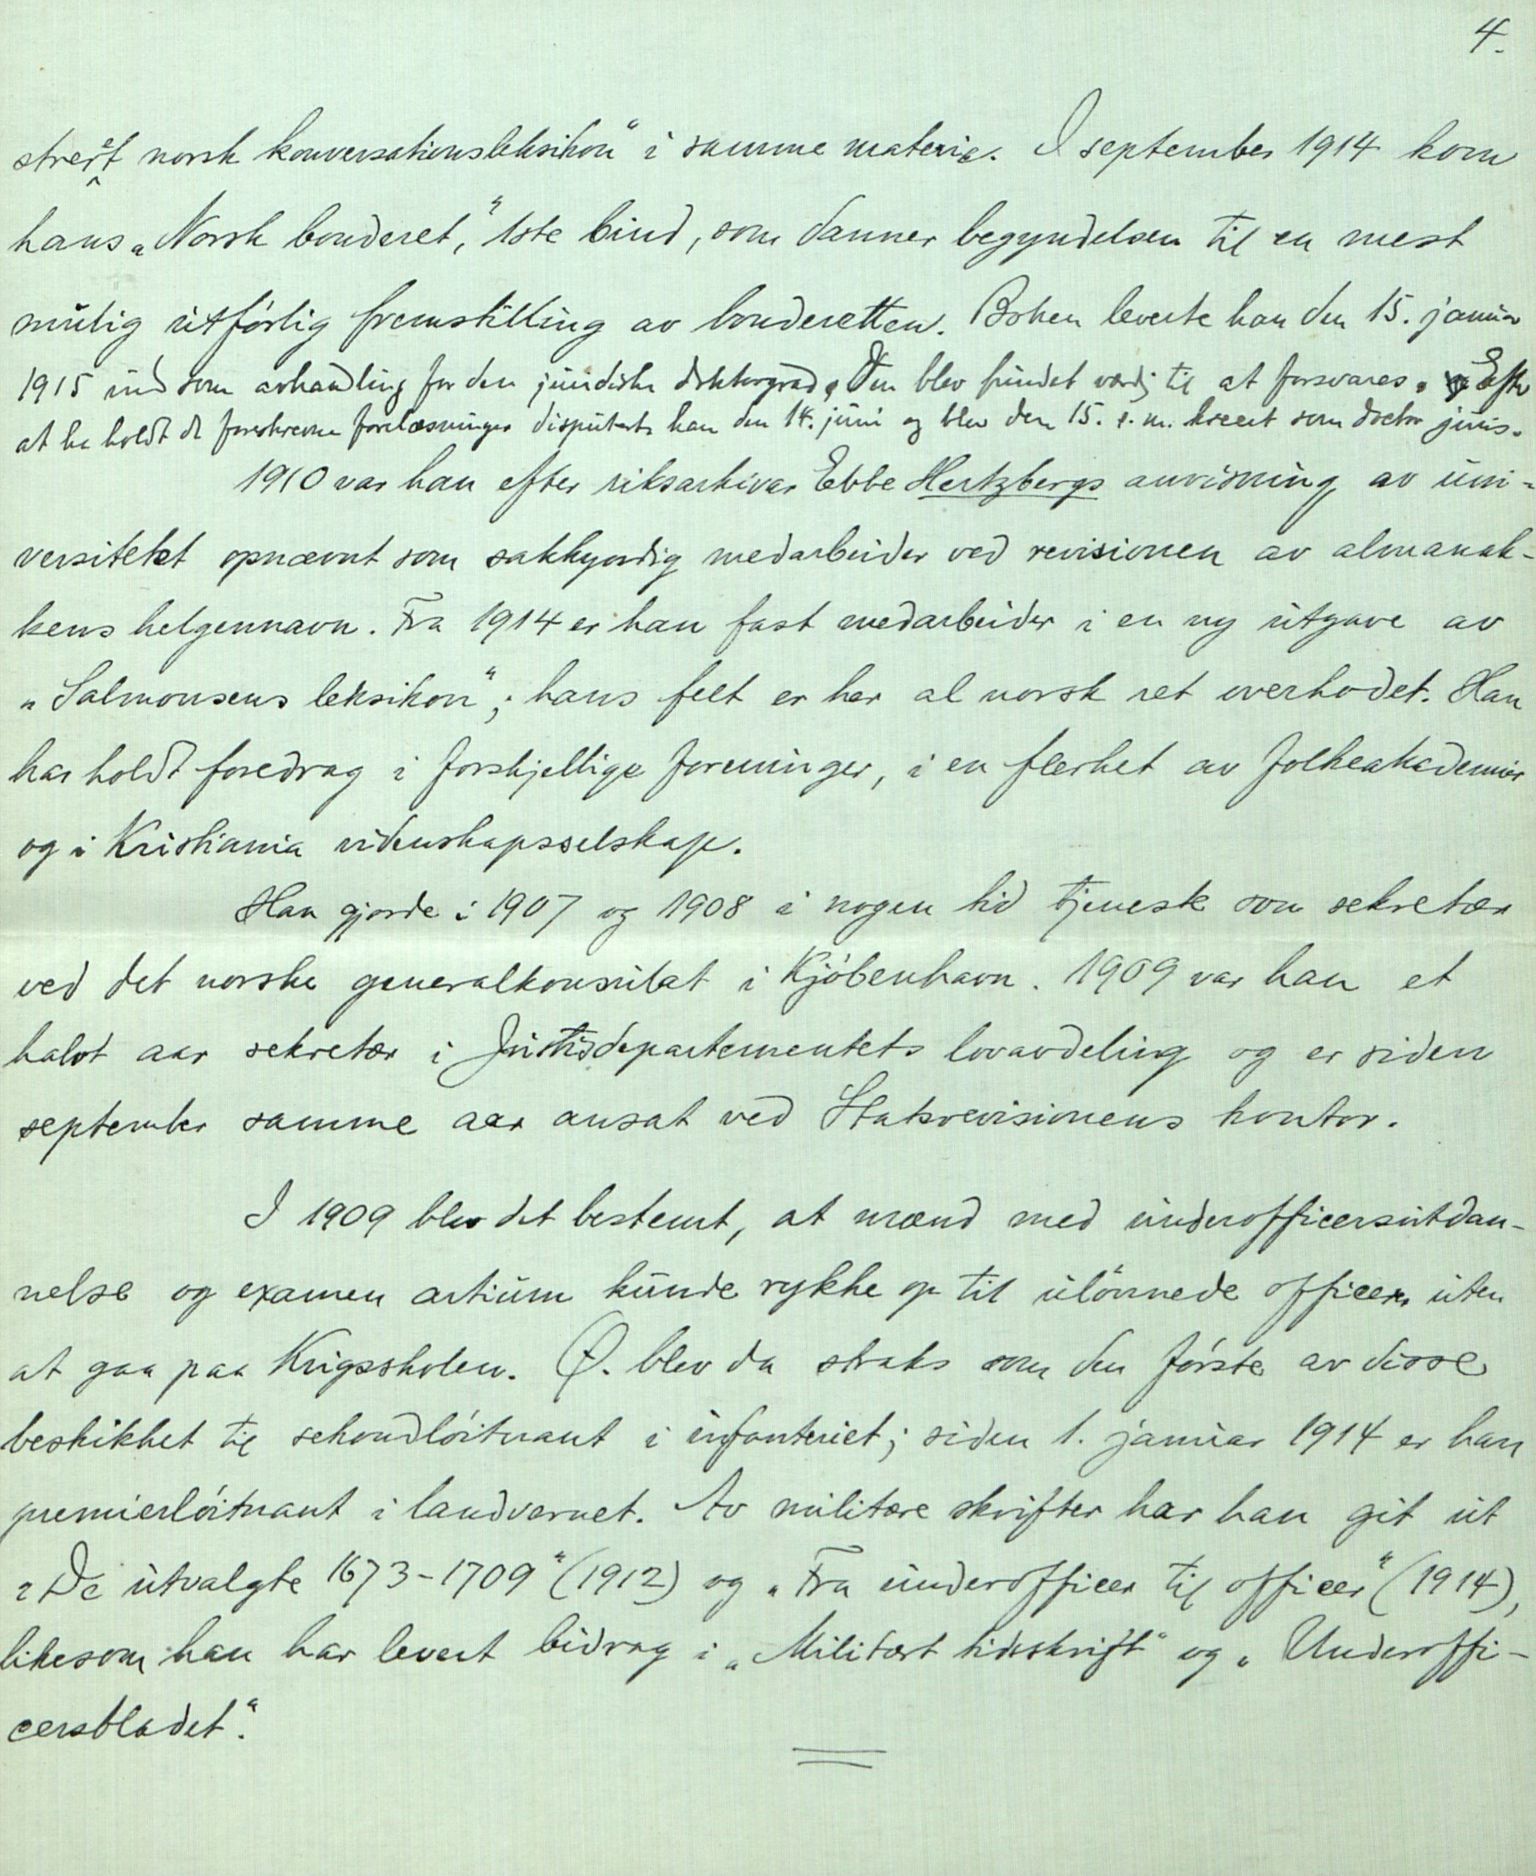 4.
strert norsk konversationsleksikon“ i samme materie. I september 1914 kom
hans „Norsk bonderet,“ 1ste bind, som danner begyndelsen til en mest
mulig utførlig fremstilling av bonderetten. Boken leverte han den 15. januar
1915 ind som avhandling for den juridiske doktorgrad. Den blev fundet værdig til at forsvares. Efter
at ha holdt de foreskrevne forelæsninger disputerte han den 14. juni og blev den 15. s. m. kreert som doctor juris.
1910 var han efter riksarkivar Ebbe Hertzbergs anvisning av uni-
versitetet opnævnt som sakkyndig medarbeider ved revisionen av almanak-
kens helgennavn. Fra 1914 er han fast medarbeider i en ny utgave av
„Salmonsens leksikon“; hans felt er her al norsk ret overhodet. Han
har holdt foredrag i forskjellige foreninger, i en flerhet av folkeakademier
og i Kristiania videnskapsselskap.
Han gjorde i 1907 og 1908 i nogen tid tjeneste som sekretær
ved det norske generalkonsulat i Kjøbenhavn. 1909 var han et
halvt aar sekretær i Justisdepartementets lovavdeling og er siden
september samme aar ansat ved Statsrevisionens kontor.
I 1909 blev det bestemt, at mænd med underofficersutdan-
nelse og examen artium kunde rykke op til ulønnede officerer uten
at gaa paa Krigsskolen. Ø. blev da straks som den første av disse
beskikket til sekondløitnant i infanteriet; siden 1. januar 1914 er han
premierløitnant i landvernet. Av militære skrifter har han git ut
„De utvalgte 1673-1709“ (1912) og „Fra underofficer til officer“ (1914),
likesom han har levert bidrag i „Militært tidsskrift“ og „Underoffi-
cersbladet“.